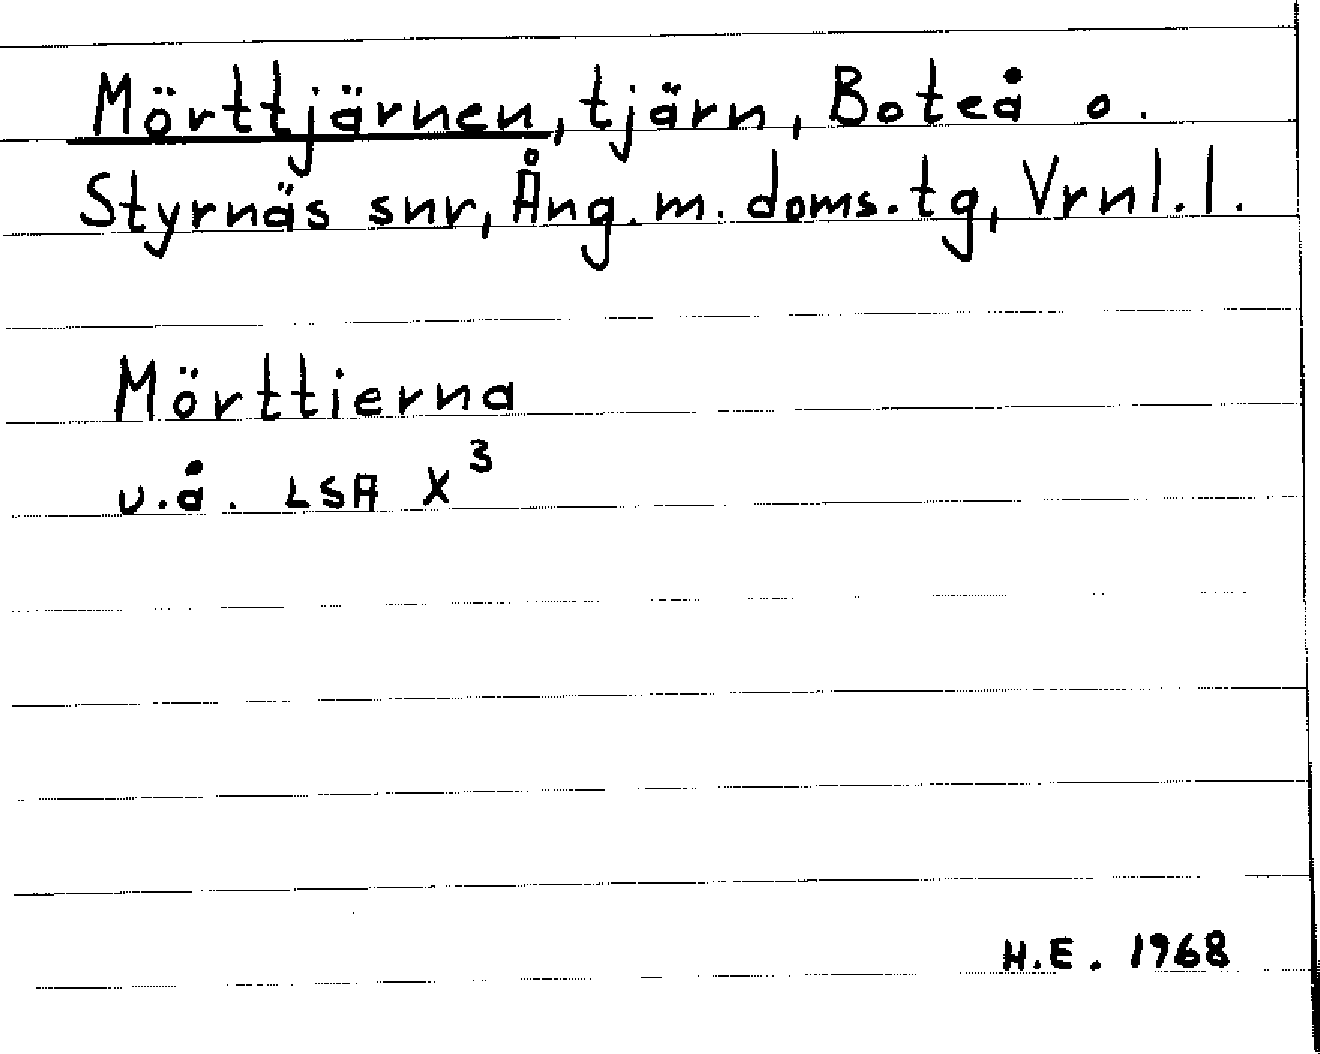 Mörttjärnen, tjärn, Boteå o.
Styrnäs snr, Ång. m. doms.tg, Vrnl.l.
Mörttierna
u.å. LSA X³
H.E. 1968